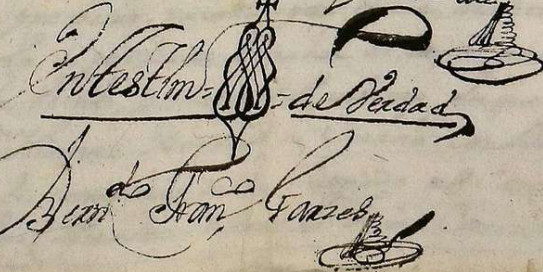 En testim= =de Verdad
Bern^do Fran^co Garzes